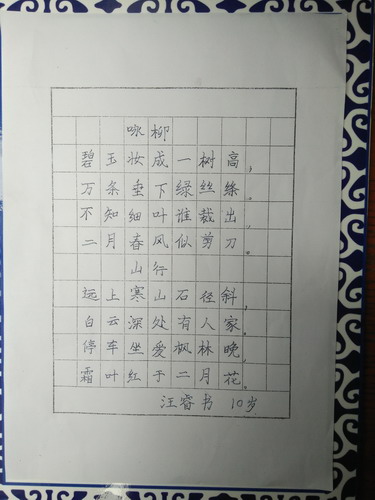 咏柳
碧玉妆成一树高，
万条垂下绿丝绦。
不知细叶谁裁出，
二月春风似剪刀。
山行
远上寒山石径斜，
白云深处有人家。
停车坐爱枫林晚，
霜叶红于二月花。
汪睿书 10岁